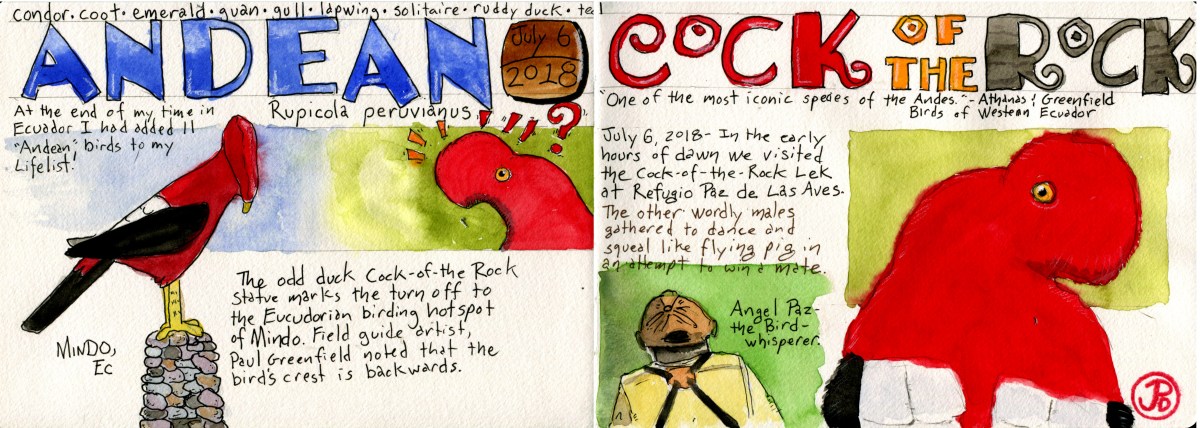 condor · coot · emerald · guan · gull · lapwing · solitaire · ruddy duck · teal
ANDEAN
July 6
2018
At the end of my time in
Ecuador I had added 11
"Andean" birds to my
Lifelist!
Rupicola peruvianus
!!!!?
The odd duck Cock-of-the Rock
statue marks the turn off to
the Eucudorian birding hotspot
of Mindo. Field guide artist,
Paul Greenfield noted that the
bird's crest is backwards.
MINDO,
Ec
COCK OF THE ROCK
"One of the most iconic spedes of the Andes." - Athanas & Greenfield
Birds of Western Ecuador
July 6, 2018- In the early
hours of dawn we visited
the Cock-of-the-Rock Lek
at Refugio Paz de Las Aves.
The other wordly males
gathered to dance and
squeal like flying pig in
an attempt to win a mate.
Angel Paz-
the Bird-
whisperer.
JPD